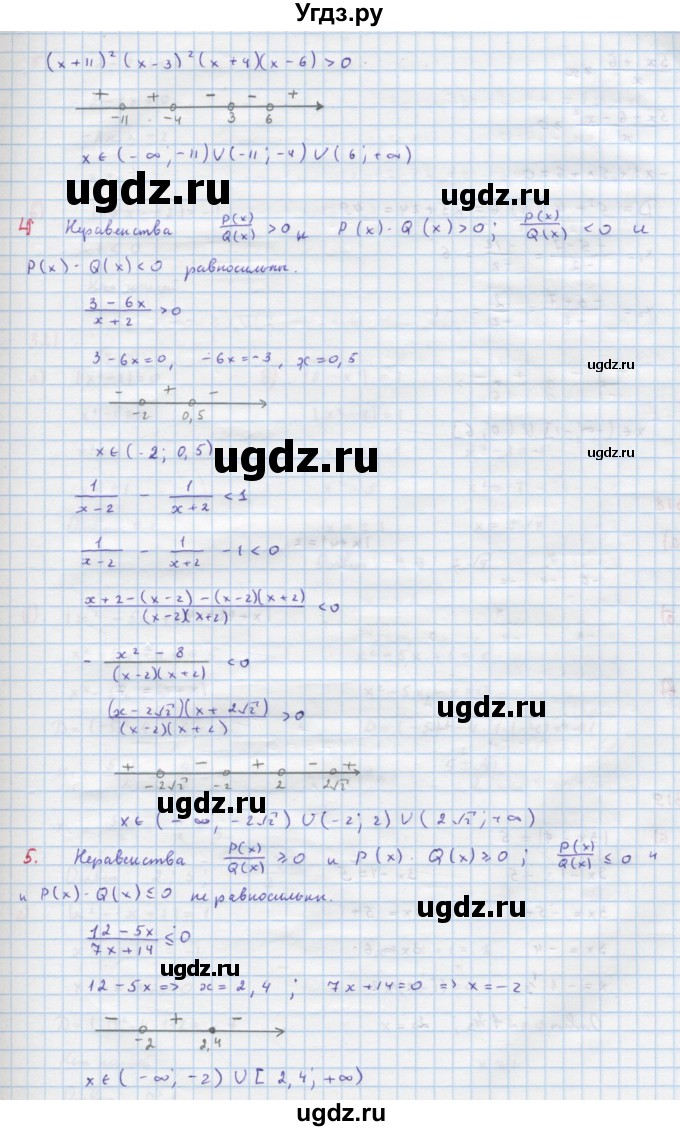 Угдз.ру
(x+11)²(x-3)²(x+4)(x-6)>0
+ + - - +
-11 -4 3 6
x∈(-∞;-11)∪(-11;-4)∪(6;+∞)
ugdz.ru ugdz.ru
4. Неравенства P(x)/Q(x) >0 и P(x)·Q(x)>0; P(x)/Q(x) <0 и
P(x)·Q(x)<0 равносильны.
(3-6x)/(x+2) >0
3-6x=0, -6x=-3, x=0,5
ugdz.ru
- + -
-2 0,5
x∈(-2; 0,5)
ugdz.ru ugdz.ru
1/(x-2) - 1/(x+2) <1
1/(x-2) - 1/(x+2) -1<0
(x+2-(x-2)-(x-2)(x+2))/((x-2)(x+2)) <0
ugdz.ru
- (x²-8)/((x-2)(x+2)) <0
(x-2√2)(x+2√2)/((x-2)(x+2)) >0
ugdz.ru
+ - + - +
-2√2 -2 2 2√2
ugdz.ru
x∈(-∞,-2√2)∪(-2;2)∪(2√2;+∞)
5. Неравенства P(x)/Q(x) ≥0 и P(x)·Q(x)≥0; P(x)/Q(x) ≤0 и
и P(x)·Q(x)≤0 не равносильны.
ugdz.ru
(12-5x)/(7x+14) ≤0
ugdz.ru
12-5x=> x=2,4; 7x+14=0 => x=-2
- + -
-2 2,4
ugdz.ru
x∈(-∞;-2)∪[2,4;+∞)
ugdz.ru